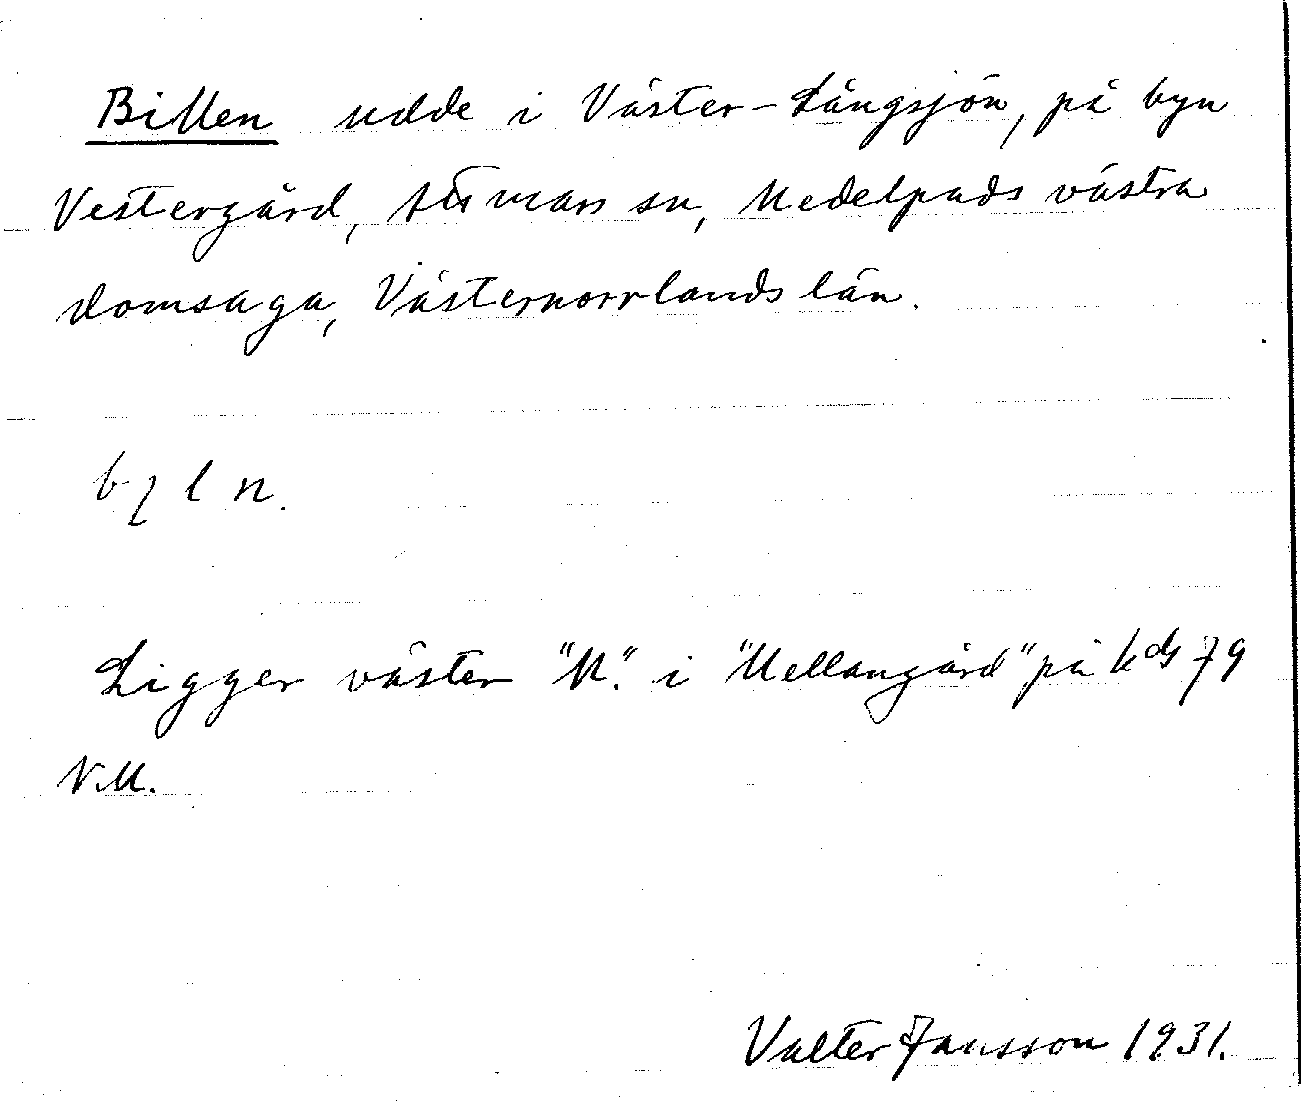 Billen udde i Väster-Långsjön, på byn
Vestergård, Stömans sn, Medelpads västra
domsaga, Västernorrlands län.
Ligger väster "M". i "Mellangård" på kbl 79
N.M.
Valter Jansson 1931.